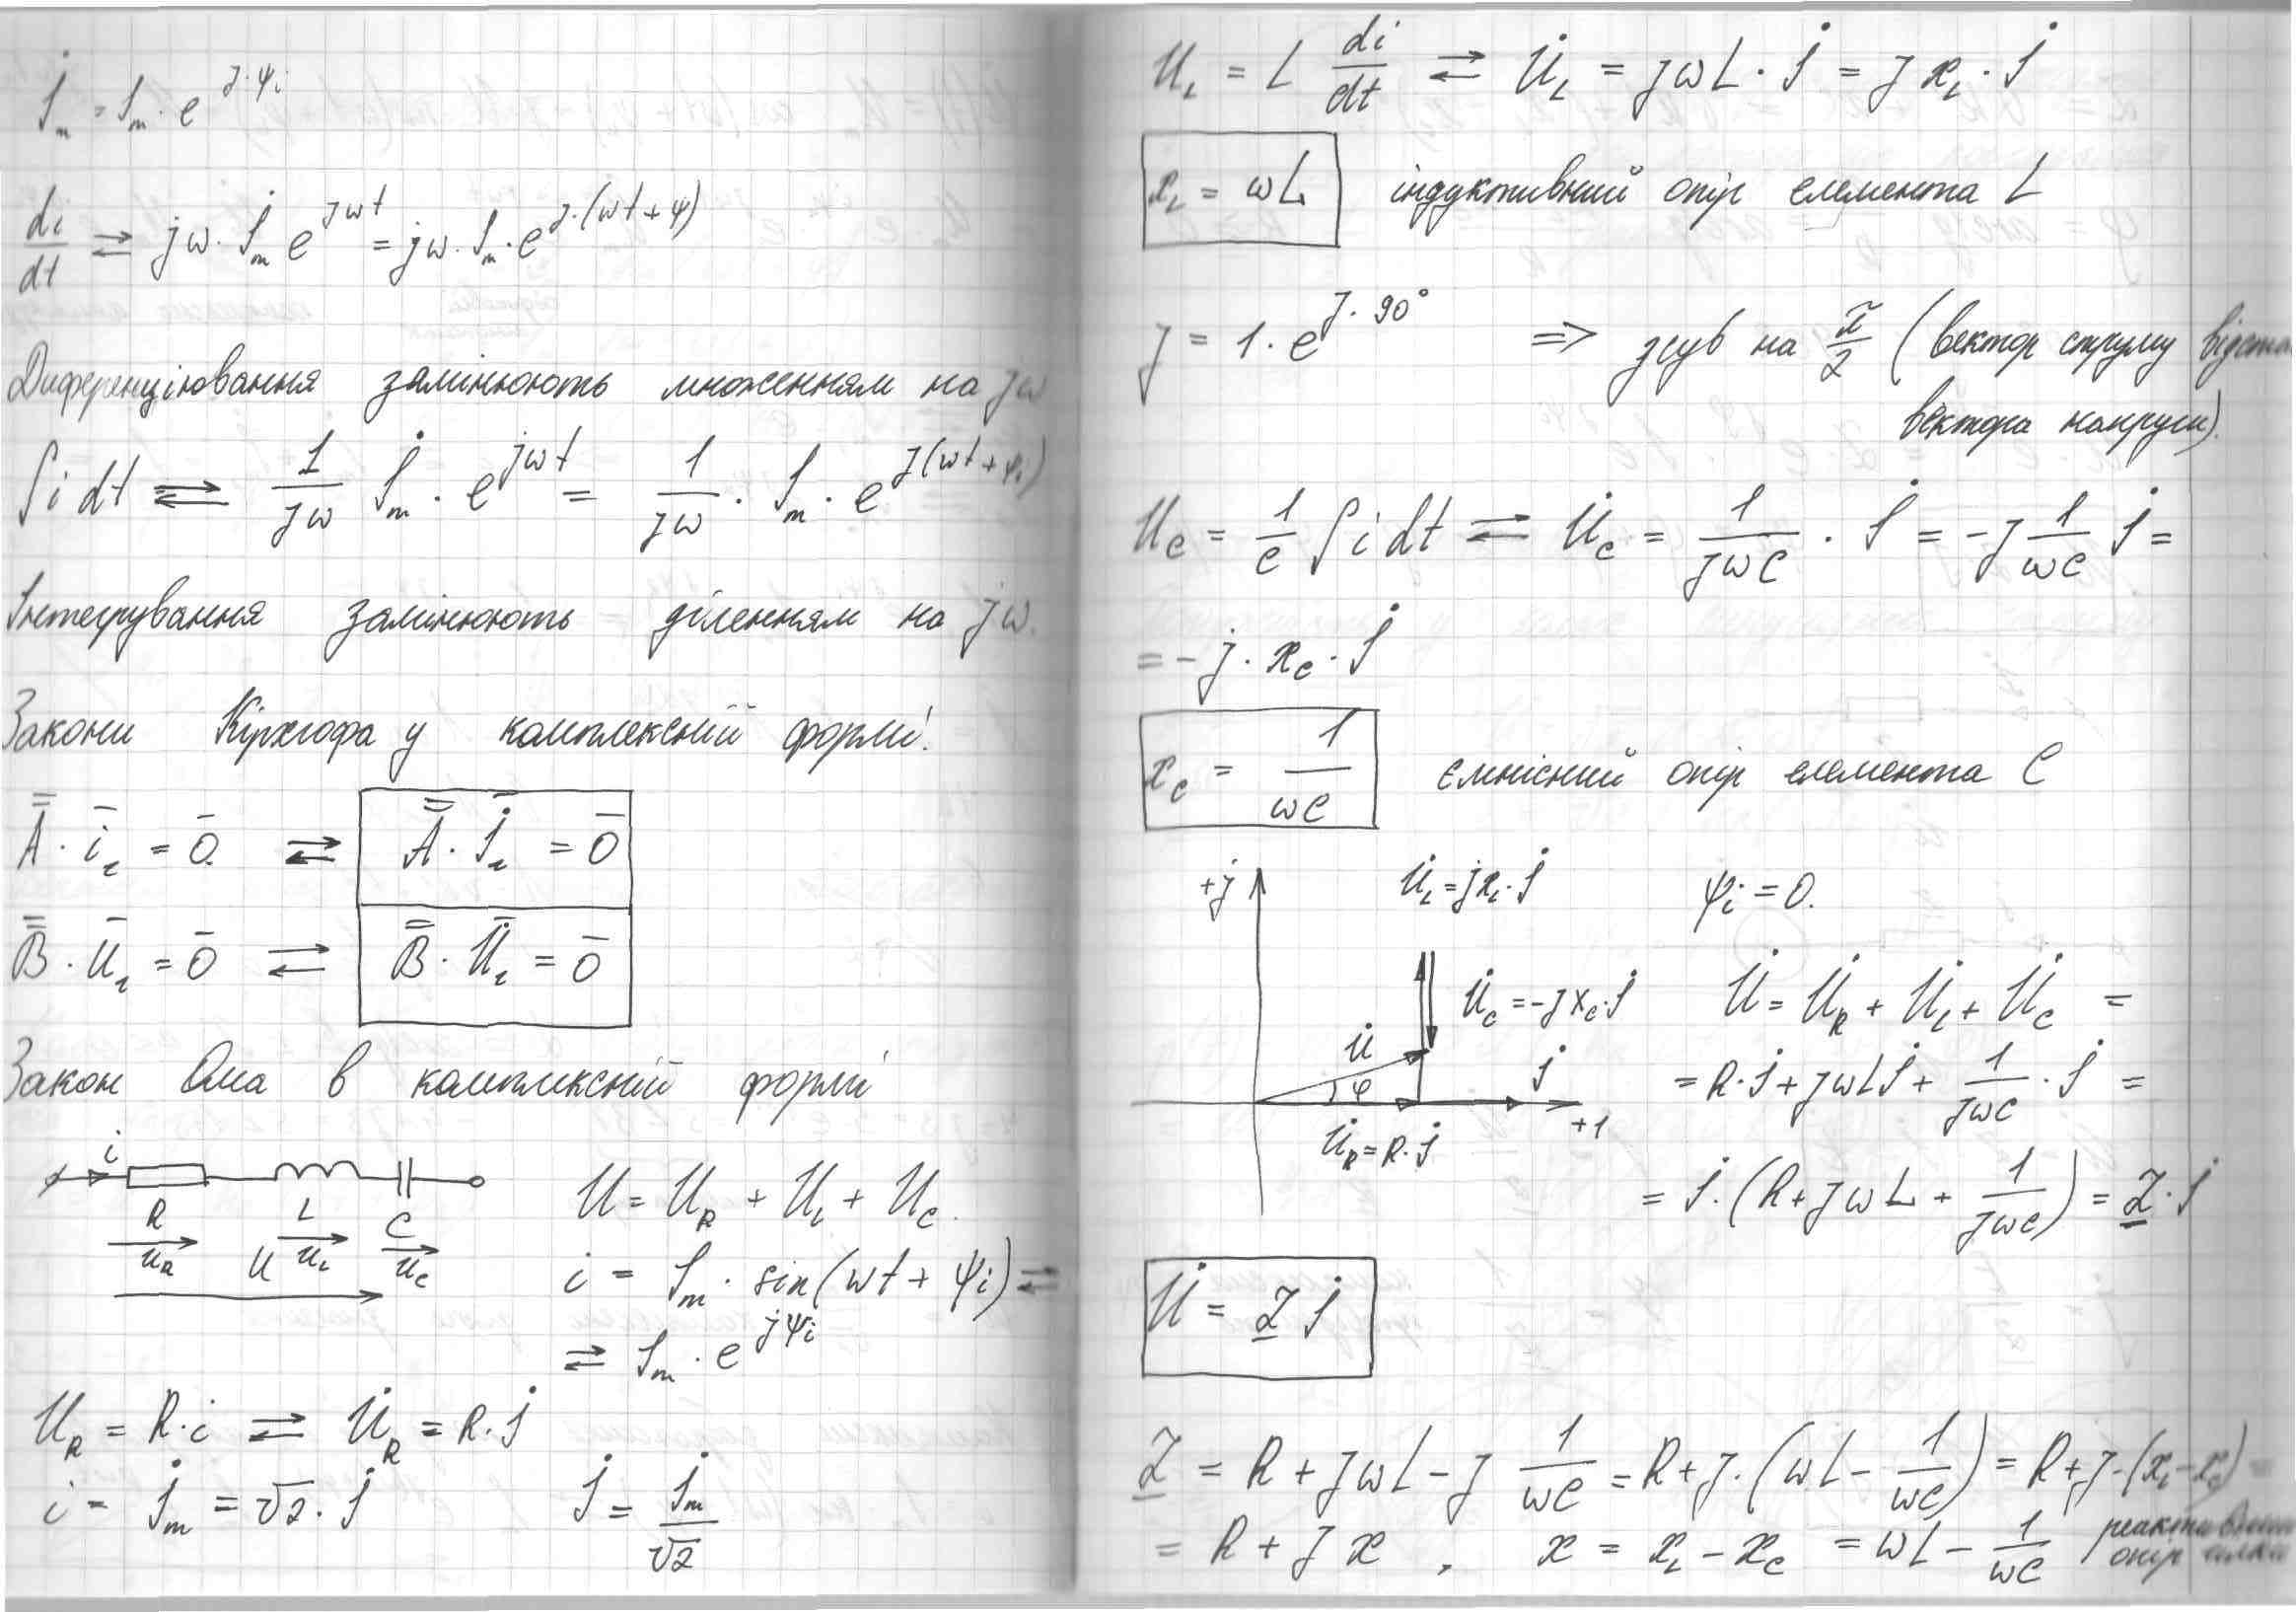 İₘ = Iₘ · e^(j·ψi)
di/dt ⇄ jω · İₘ e^(jωt) = jω · Iₘ · e^(j·(ωt+ψ))
Диференціювання замінюють множенням на jω
∫i dt ⇄ 1/(jω) İₘ · e^(jωt) = 1/(jω) · Iₘ · e^(j(ωt+ψi))
Інтегрування замінюють діленням на jω.
Закони Кірхгофа у комплексній формі:
A̿ · i̅ᵣ = 0̅ ⇄ A̿ · İ̅ᵣ = 0̅
B̿ · U̅ᵣ = 0̅ ⇄ B̿ · U̇̅ᵣ = 0̅
Закон Ома в комплексній формі
i
R L C
U_R U U_L U_C
U = U_R + U_L + U_C.
i = Iₘ · sin(ωt + ψi) ⇄
⇄ Iₘ · e^(jψi)
U_R = R·i ⇄ U̇_R = R·İ
i = İₘ = √2 · İ İ = İₘ/√2
U_L = L di/dt ⇄ U̇_L = jωL · İ = j x_L · İ
x_L = ωL індуктивний опір елемента L
j = 1 · e^(j·90°) ⇒ зсув на π/2 (вектор струму
вектора напруги).
U_C = 1/C ∫i dt ⇄ U̇_C = 1/(jωC) · İ = -j 1/(ωC) İ =
= -j · x_C · İ
x_C = 1/(ωC) ємнісний опір елемента C
+j U̇_L = jx_L · İ ψi = 0.
U̇_C = -jx_C·İ U̇ = U̇_R + U̇_L + U̇_C =
U̇ φ İ +1 = R·İ + jωLİ + 1/(jωC) · İ =
U̇_R = R·İ
= İ · (R + jωL + 1/(jωC)) = Z · İ
U̇ = Z İ
Z = R + jωL - j 1/(ωC) = R + j·(ωL - 1/(ωC)) = R + j·(x_L - x_C) =
= R + jx , x = x_L - x_C = ωL - 1/(ωC) реактивний
опір